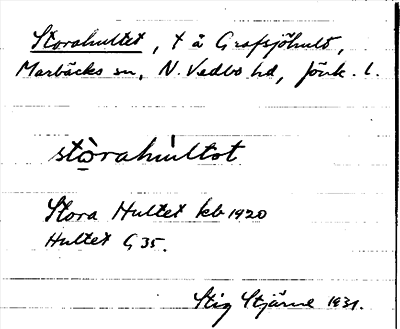 Storahultet, t å Grafsjöhult,
Marbäcks sn, N. Vedbo hd, Jönk. l.
stòrahùltot
Stora Hultet kb 1920
Hultet G 35.
Stig Stjärne 1931.